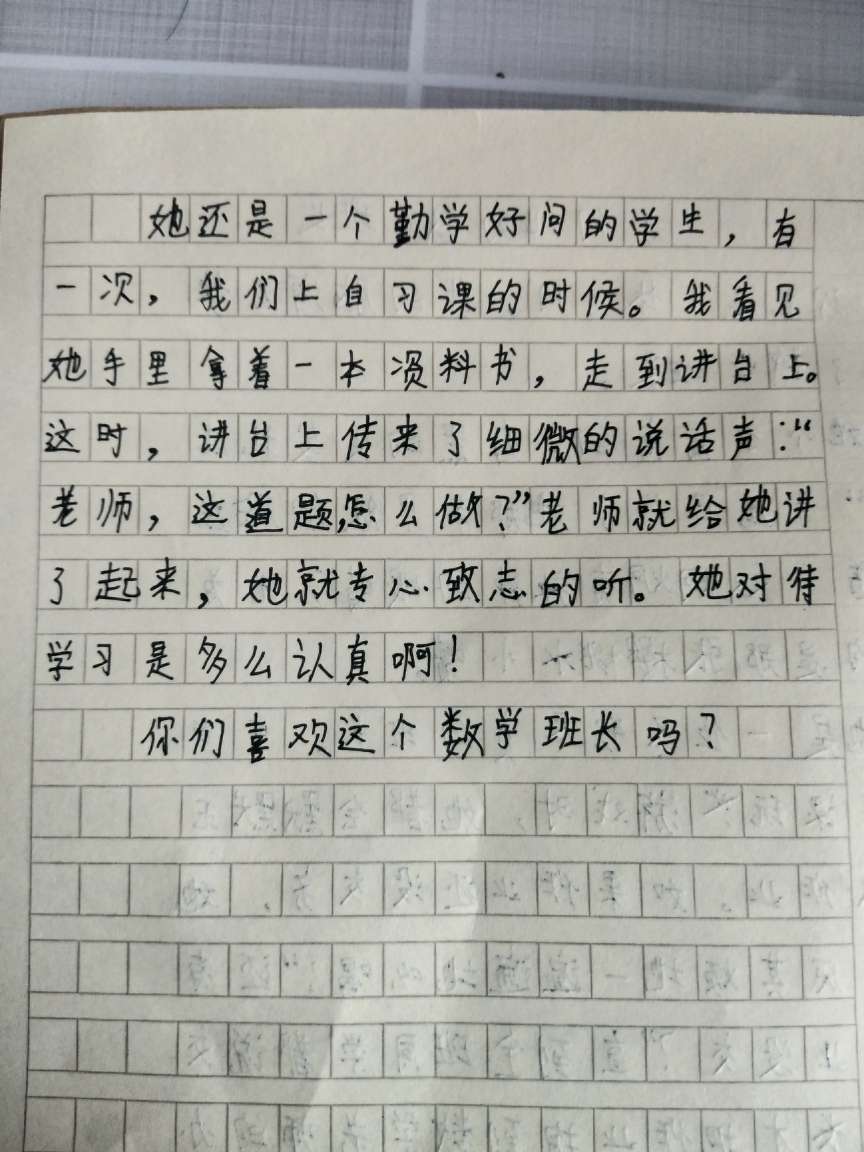 她还是一个勤学好问的学生，有
一次，我们上自习课的时候。我看见
她手里拿着一本资料书，走到讲台上。
这时，讲台上传来了细微的说话声：“
老师，这道题，怎么做？”老师就给她讲
了起来，她就专心致志的听。她对待
学习是多么认真啊！
你们喜欢这个数学班长吗？